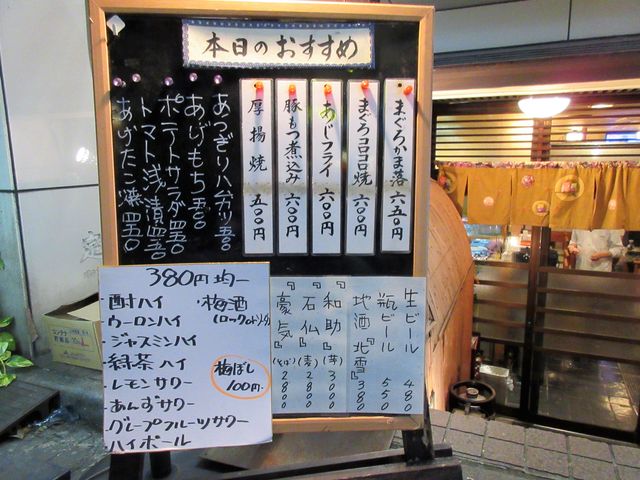 本日のおすすめ
まぐろかま落 六五0円
まぐろコロコロ焼 六00円
あじフライ 六00円
豚もつ煮込み 六00円
厚揚焼 五00円
あつぎりハムカツ 五50
あげもち 五00
ポテートサラダ 四50
トマト浅漬 四50
あげたこ焼 四50
生ビール 480
瓶ビール 550
地酒『北雪』 380
『和助』(芋) 300
『石仏』(麦) 2800
『豪気』(そば) 2800
380円均一
・酎ハイ
・ウーロンハイ
・ジャスミンハイ
・緑茶ハイ
・レモンサワー
・あんずサワー
・グレープフルーツサワー
・ハイボール
・梅酒
梅ぼし
100円